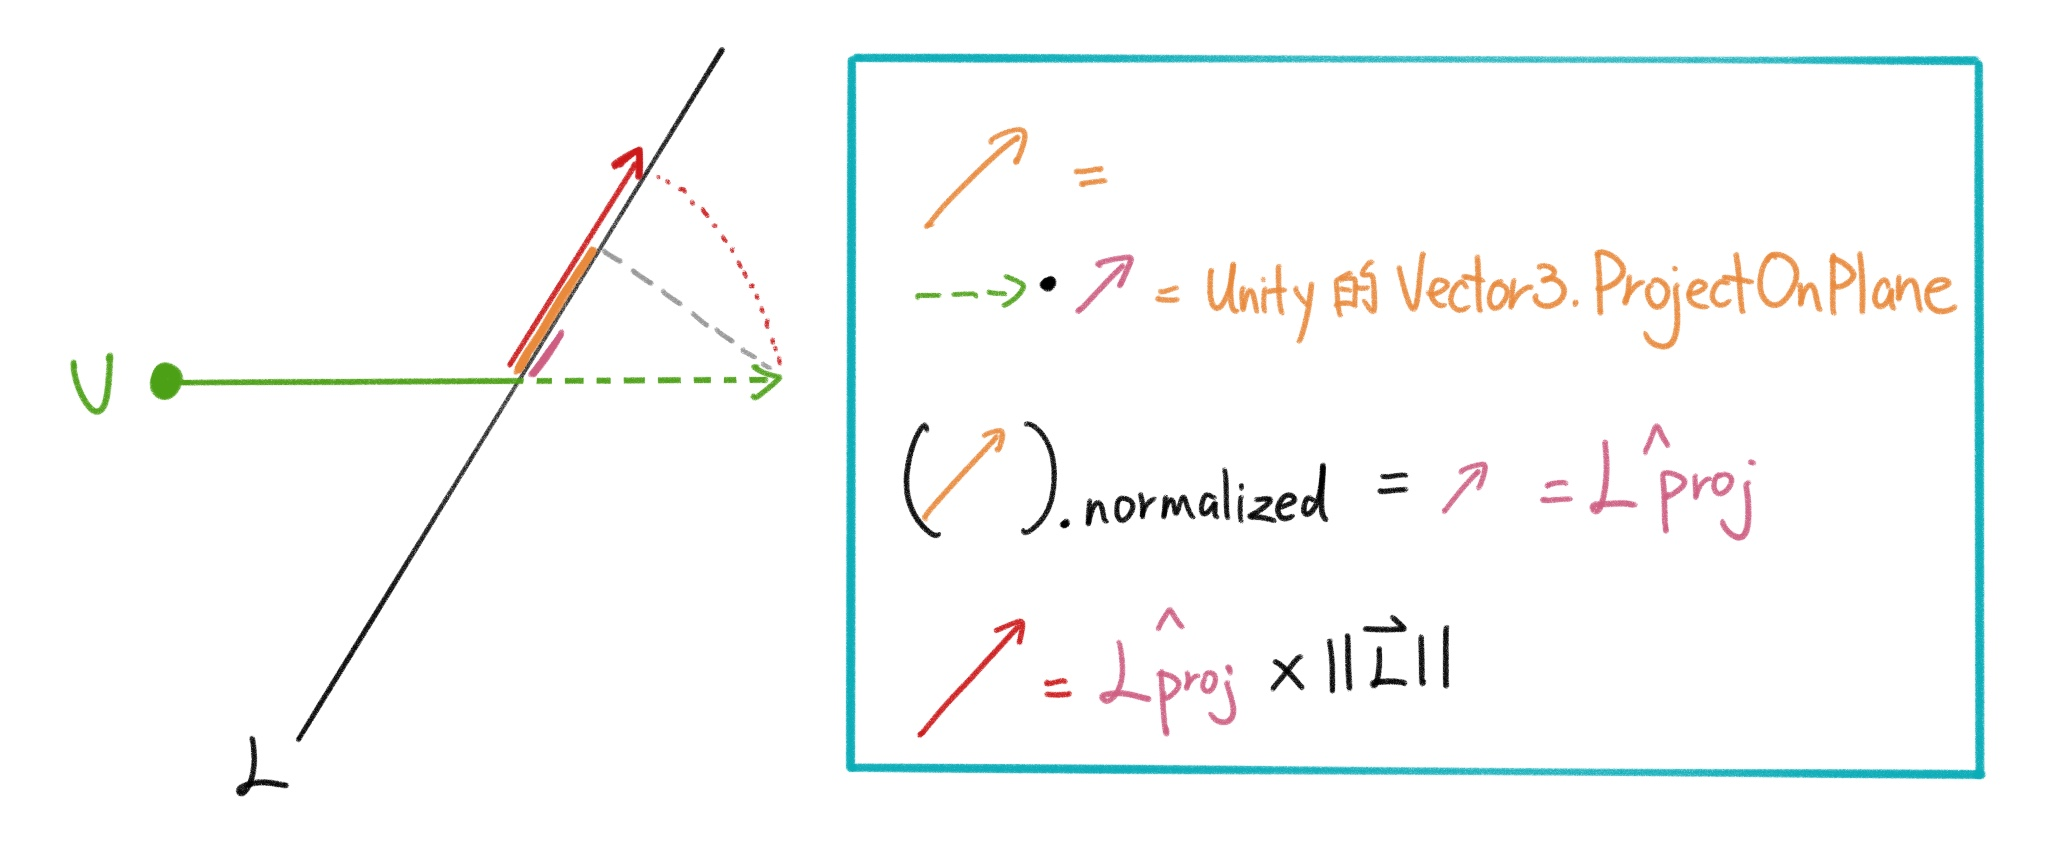 U
L
=
• = Unity 的 Vector3. ProjectOnPlane
( ).normalized = = L̂proj
= L̂proj × ||L⃗||